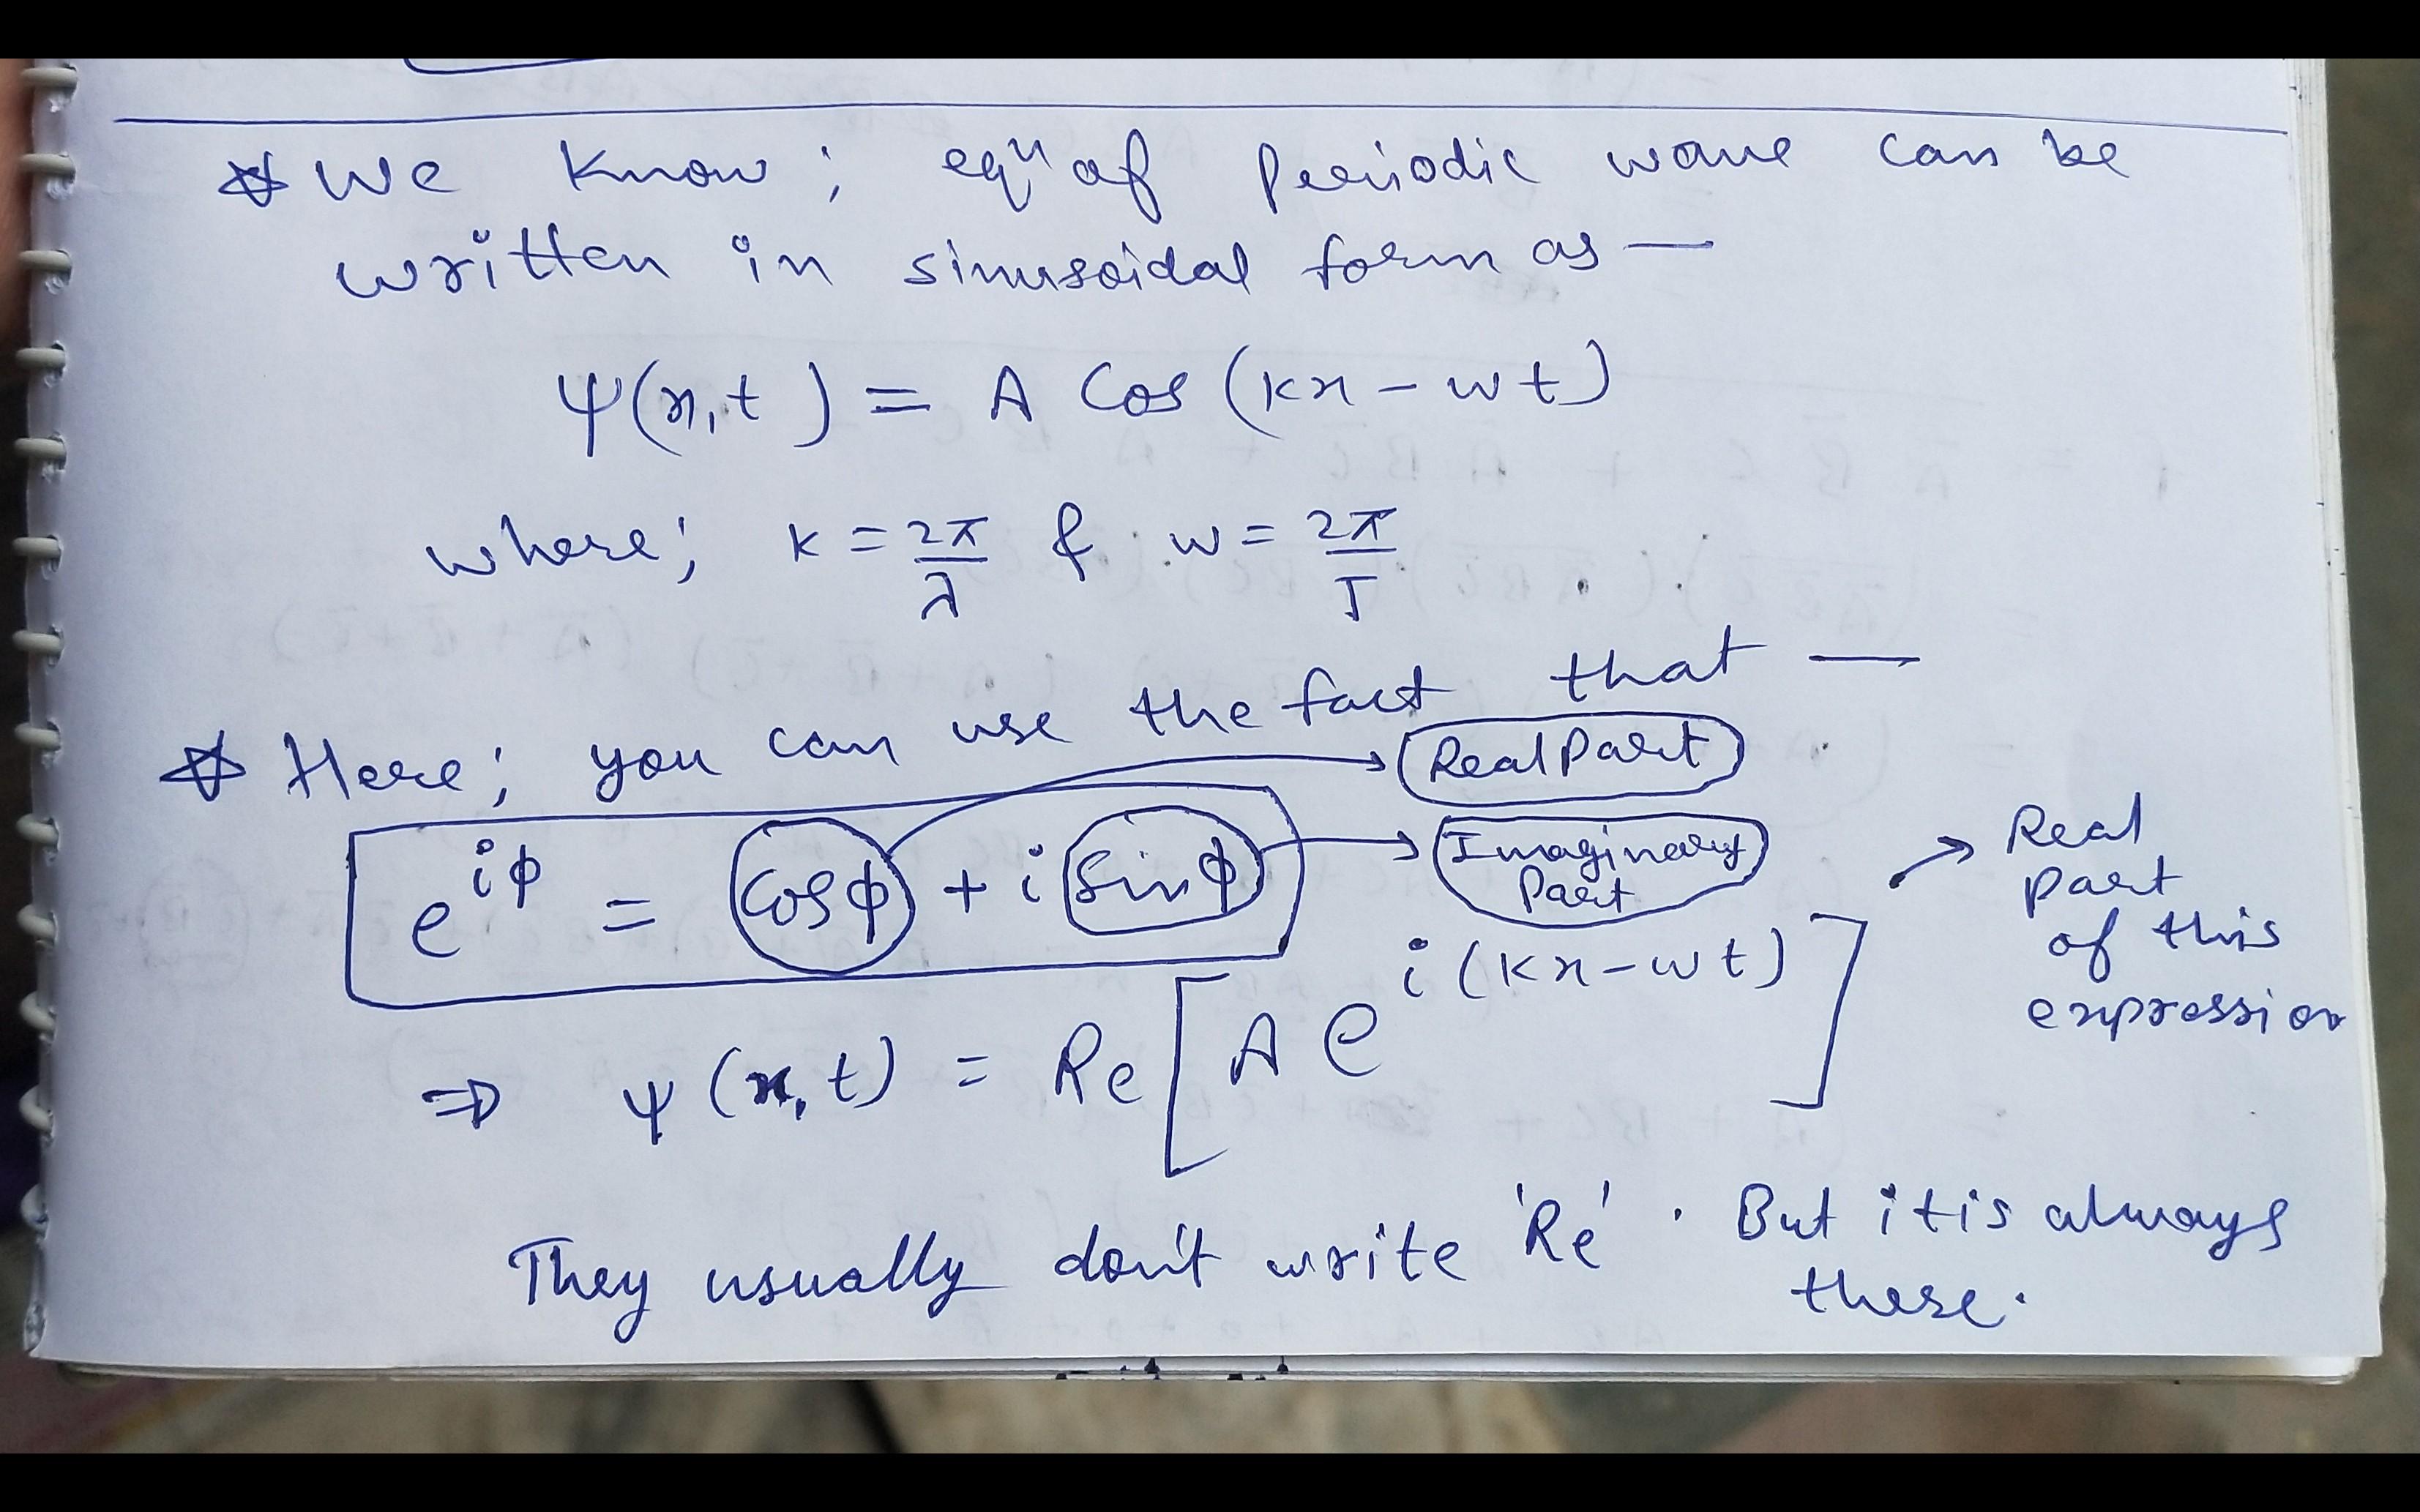 ☆ We know; eqⁿ of Periodic wave can be
written in sinusoidal form as —
ψ(x,t) = A Cos (kx - wt)
where; k = 2π/λ & w = 2π/T
☆ Here; you can use the fact that —
Real Part
e^{iϕ} = Cosϕ + i Sinϕ
Imaginary
Part
⇒ ψ(x,t) = Re [A e^{i(kx-wt)}]
Real
part
of this
expression
They usually don't write 'Re'. But it is always
there.